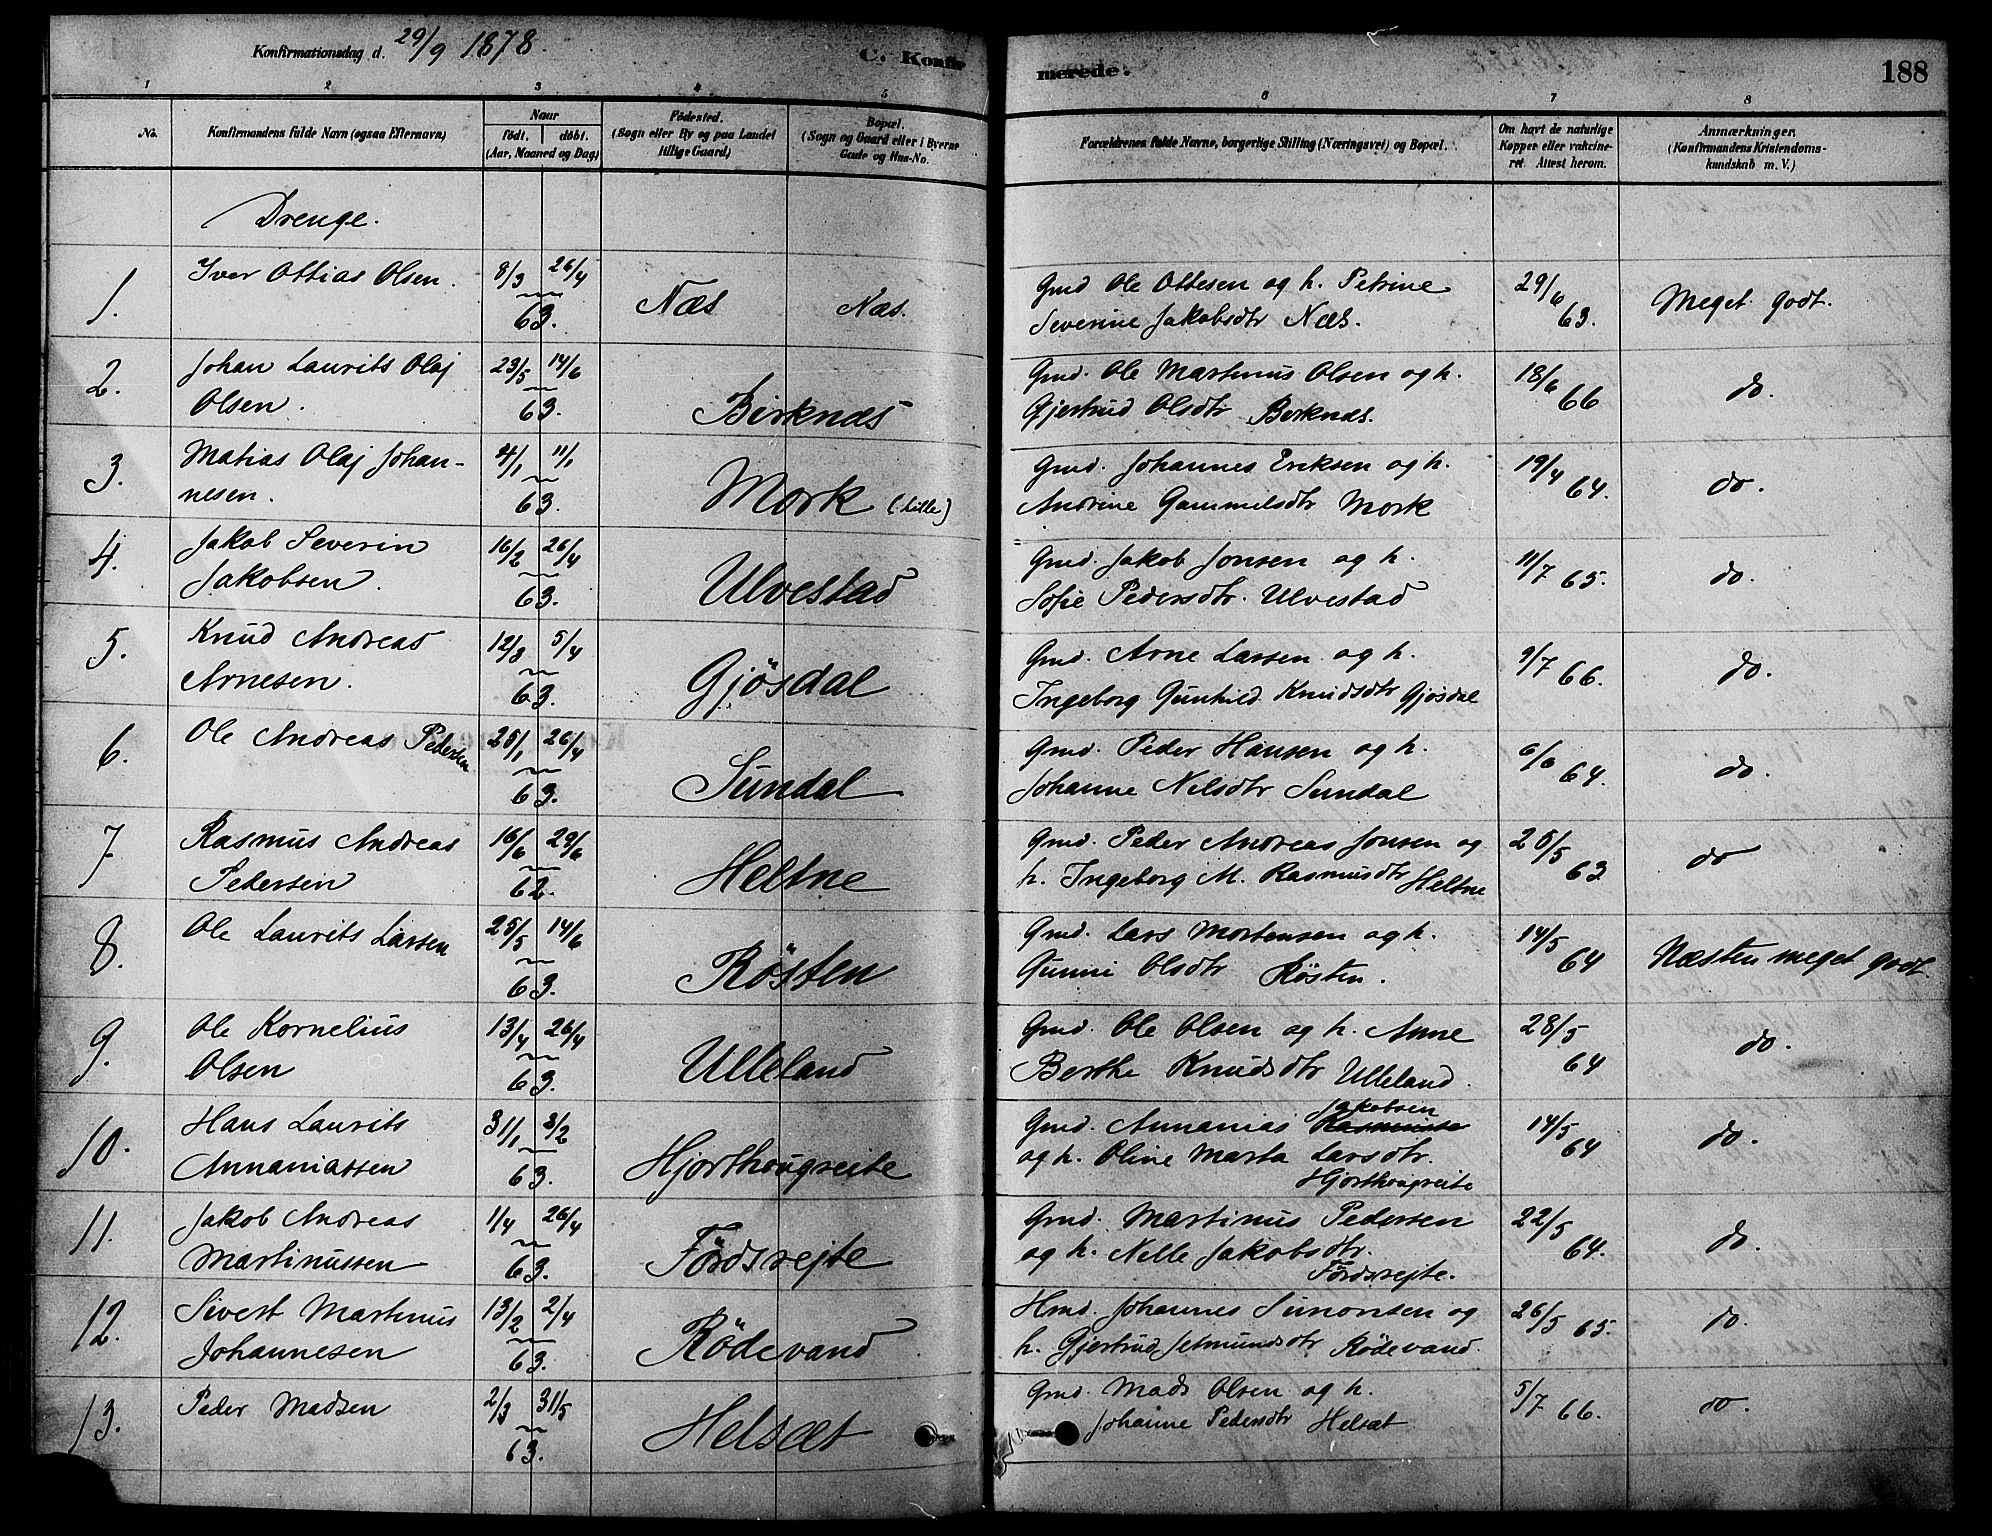 Konfirmationsdag d. 29/9 1878.
C. Konfirmerede.
188
1 2 3 4 5 6 7 8
No.
Konfirmandens fulde Navn (ogsaa Efternavn)
Naar
födt. döbt.
(Aar, Maaned og Dag)
Födested.
(Sogn eller By og paa Landet
tillige Gaard)
Bopæl.
(Sogn og Gaard eller i Byerne
Gade og Hus-No.
Forældrenes fulde Navne, borgerlige Stilling (Næringsvei) og Bopæl.
Om havt de naturlige
Kopper eller vakcine-
ret Attest herom.
Anmærkninger.
(Konfirmandens Kristendoms-
kundskab m. V.)
Drenge.
1. Iver Ottias Olsen. 8/3 26/4 63. Næs Næs. Gmd Ole Ottesen og h. Petrine
Severine Jakobsdtr Næs. 29/6 63. Meget godt.
2. Johan Laurits Olaj
Olsen. 23/5 14/6 63. Birknæs Gmd. Ole Martinus Olsen og h.
Gjertrud Olsdtr Berknæs. 18/6 66 do.
3. Matias Olaj Johan-
nesen. 4/1 11/1 63. Mork (lille) Gmd. Johannes Eriksen og h.
Andrine Gammelsdtr Mork 19/4 64. do.
4. Jakob Severin
Jakobsen. 16/2 26/4 63. Ulvestad Gmd. Jakob Jonsen og h.
Sofie Pedersdtr. Ulvestad 11/7 65. do.
5. Knud Andreas
Arnesen. 12/3 5/4 63. Gjösdal Gmd. Arne Larsen og h.
Ingeborg Gunhild Knudsdtr Gjösdal 9/7 66. do.
6. Ole Andreas Pedersen 25/1 26/4 63. Sundal Gmd. Peder Hansen og h.
Johanne Nilsdtr Sundal 6/6 64. do.
7 Rasmus Andreas
Pedersen 16/6 29/6 62. Heltne Gmd. Peder Andreas Jonsen og
h. Ingeborg M. Rasmusdtr Heltne 25/5 63 do
8. Ole Laurits Larsen 25/5 14/6 63. Rösten Gmd. Lars Mortensen og h.
Gunni Olsdtr Rösten. 14/5 64 Næsten meget godt
9. Ole Kornelius
Olsen 13/4 26/4 63. Ulleland Gmd. Ole Olsen og h. Anne
Berthe Knudsdtr Ulleland. 28/5 64 do.
10. Hans Laurits
Annaniassen 31/1 3/2 63. Hjorthougreite Gmd. Annanias Rasmusse Jakobsen
og h. Oline Marta Larsdtr.
Hjorthougreite 14/5 64 do.
11. Jakob Andreas
Martinussen 1/4 26/4 63. Fördsrejte Gmd. Martinus Pedersen
og h. Nelle Jakobsdtr.
Fördsrejte. 22/5 64. do.
12. Sivert Martinus
Johannesen 13/2 2/4 63. Rödevand Hmd. Johannes Simonsen og
h. Gjertrud Jetmundsdtr Rödevand. 26/5 65. do.
13. Peder Madsen 2/3 31/5 63. Helsæt Gmd. Mads Olsen og h.
Johanne Pedersdtr Helsæt 5/7 66. do.